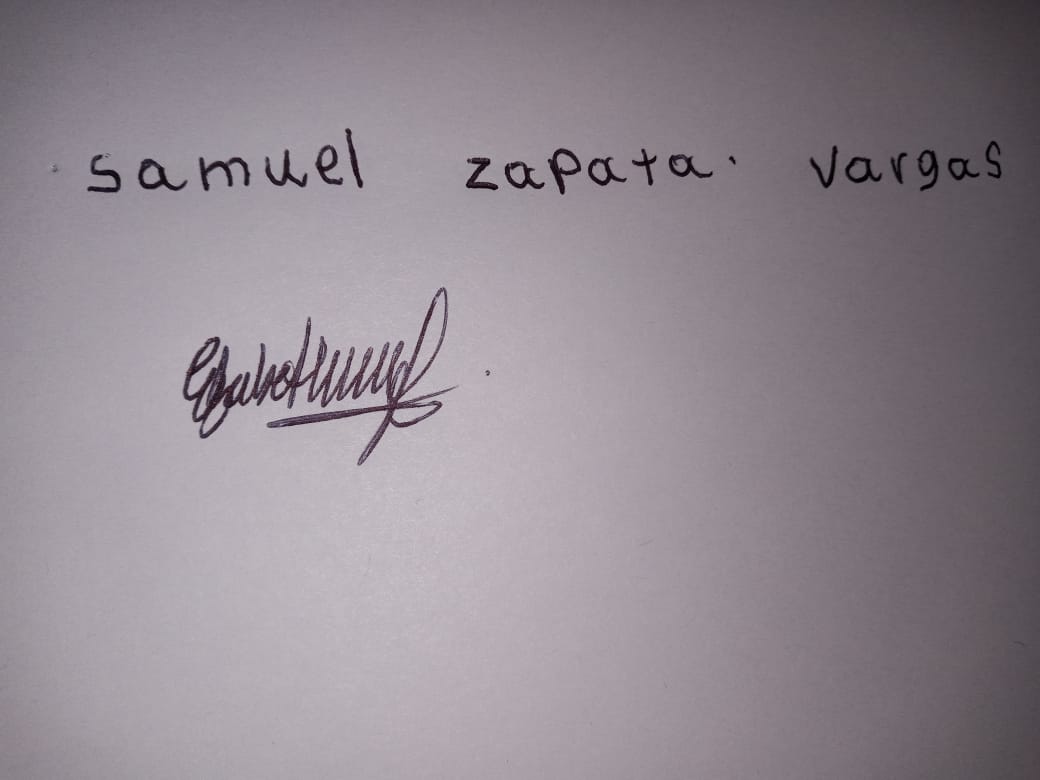 samuel zapata. vargas